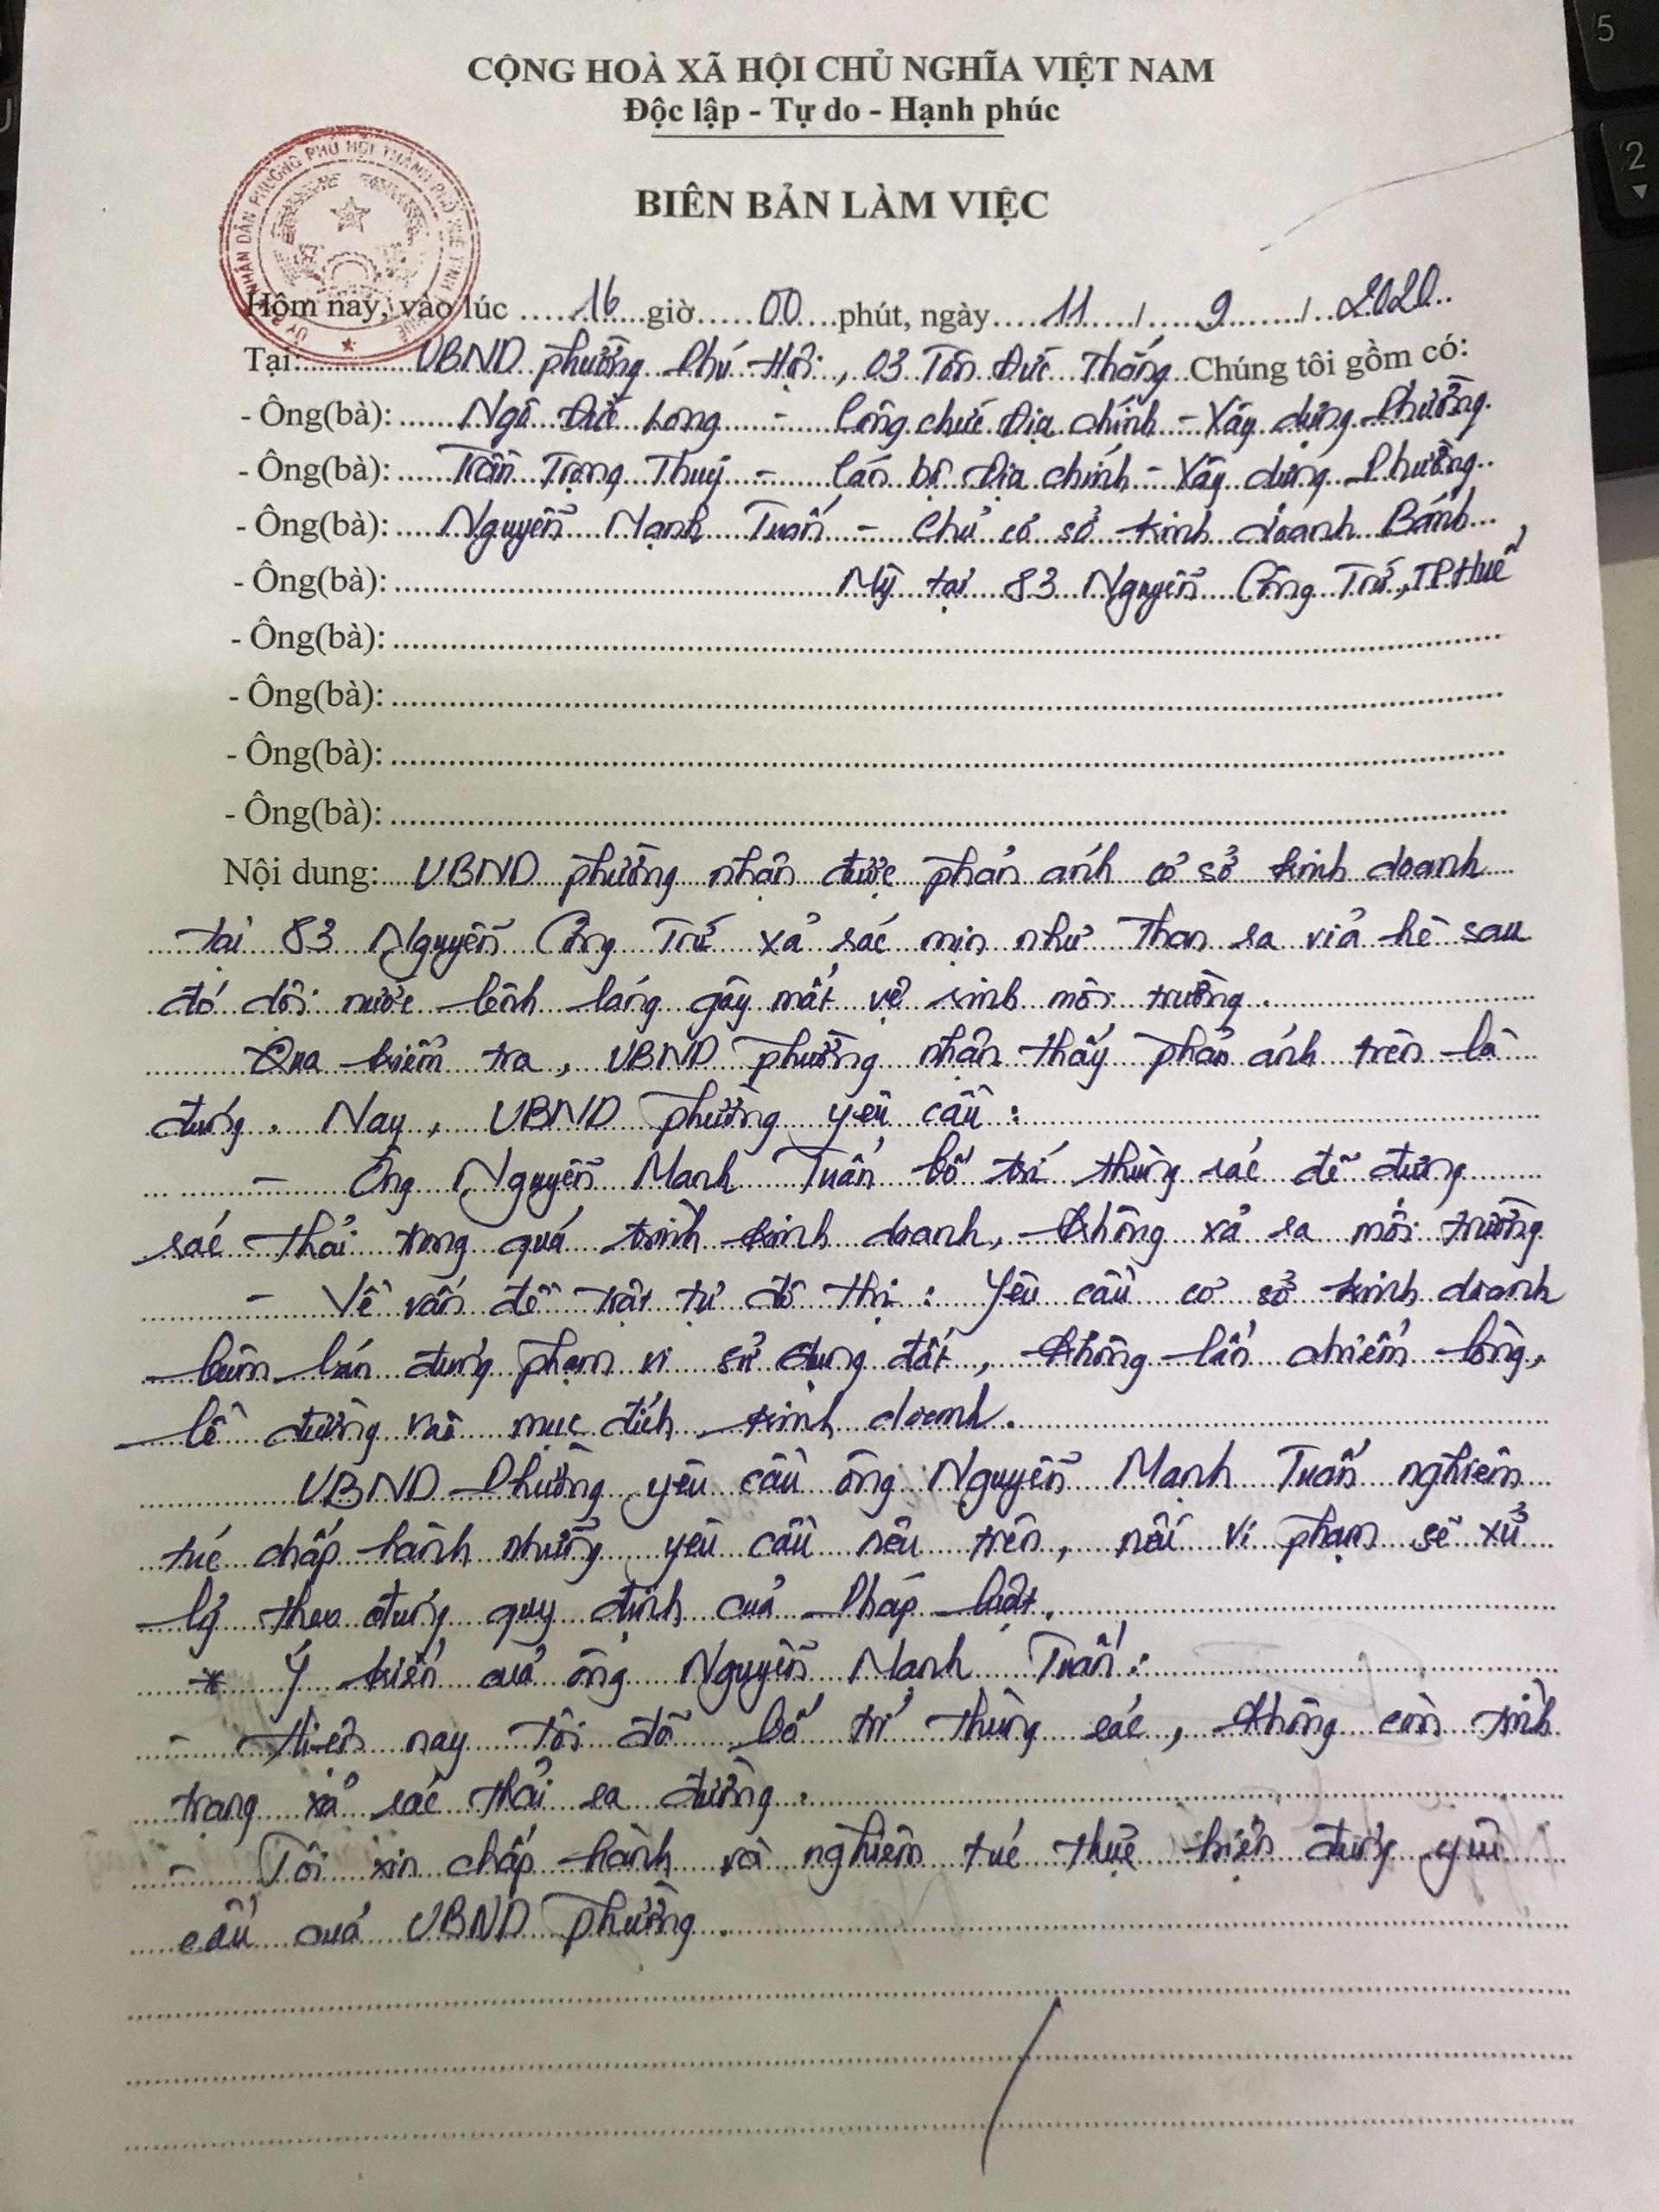 CỘNG HOÀ XÃ HỘI CHỦ NGHĨA VIỆT NAM
Độc lập - Tự do - Hạnh phúc
BIÊN BẢN LÀM VIỆC
ỦY BAN NHÂN DÂN PHƯỜNG PHÚ HỘI THÀNH PHỐ HUẾ TỈNH HUẾ
Hôm nay, vào lúc .....16.....giờ.....00.....phút, ngày.....11...../.....9...../..2020..
Tại:.....UBND phường Phú Hội, 03 Tôn Đức Thắng Chúng tôi gồm có:
- Ông(bà): Ngô Đức Long - Công chức Địa chính - Xây dựng Phường.
- Ông(bà): Trần Trọng Thuỷ - Cán bộ Địa chính - Xây dựng Phường.
- Ông(bà): Nguyễn Mạnh Tuấn - Chủ cơ sở kinh doanh Bánh
- Ông(bà): Mỳ tại 83 Nguyễn Công Trứ, TP. Huế
- Ông(bà):
- Ông(bà):
- Ông(bà):
- Ông(bà):
Nội dung: UBND phường nhận được phản ánh cơ sở kinh doanh
tại 83 Nguyễn Công Trứ xả rác mịn như than ra vỉa hè sau
đó dội nước lênh láng gây mất vệ sinh môi trường.
Qua kiểm tra, UBND phường nhận thấy phản ánh trên là
đúng. Nay, UBND phường yêu cầu:
- Ông Nguyễn Mạnh Tuấn bố trí thùng rác để đựng
rác thải trong quá trình kinh doanh, không xả ra môi trường
- Về vấn đề trật tự đô thị: Yêu cầu cơ sở kinh doanh
buôn bán đúng phạm vi sử dụng đất, không lấn chiếm lòng,
lề đường vào mục đích kinh doanh.
UBND Phường yêu cầu ông Nguyễn Mạnh Tuấn nghiêm
túc chấp hành những yêu cầu nêu trên, nếu vi phạm sẽ xử
lý theo đúng quy định của Pháp luật.
* Ý kiến của ông Nguyễn Mạnh Tuấn:
- Hiện nay tôi đã bố trí thùng rác, không còn tình
trạng xả rác thải ra đường.
- Tôi xin chấp hành và nghiêm túc thực hiện đúng yêu
cầu của UBND phường.
5
2